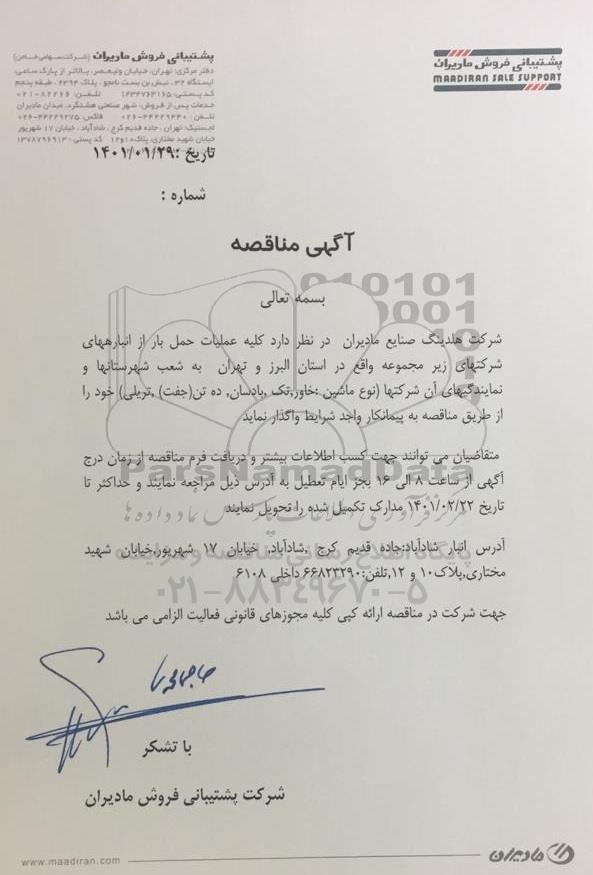 پشتیبانی فروش مادیران
MAADIRAN SALE SUPPORT
پشتیبانی فروش مادیران (شرکت سهامی خاص)
دفتر مرکزی: تهران، خیابان ولیعصر، بالاتر از پارک ساعی،
ایستگاه ۳۲، نبش بن بست نامجو ، پلاک ۲۳۹۴ ، طبقه پنجم
کد پستی: ۱۴۳۴۷۶۳۱۶۵ تلفن: ۸۲۲۶۶-۰۲۱
خدمات پس از فروش: شهر صنعتی هشتگرد، میدان مادیران
تلفن: ۴۴۲۲۹۴۴۰-۰۲۶ فاکس: ۴۴۲۲۹۲۷۵-۰۲۶
لجستیک: تهران ، جاده قدیم کرج ، شادآباد ، خیابان ۱۷ شهریور
خیابان شهید مختاری، پلاک ۱۰ و ۱۲ کد پستی: ۱۳۷۸۷۹۶۹۱۳
تاریخ :۱۴۰۱/۰۱/۲۹
شماره :
آگهی مناقصه
بسمه تعالی
شرکت هلدینگ صنایع مادیران در نظر دارد کلیه عملیات حمل بار از انبارههای
شرکتهای زیر مجموعه واقع در استان البرز و تهران به شعب شهرستانها و
نمایندگیهای آن شرکتها (نوع ماشین :خاور,تک ,بادسان, ده تن(جفت) ,تریلی) خود را
از طریق مناقصه به پیمانکار واجد شرایط واگذار نماید
متقاضیان می توانند جهت کسب اطلاعات بیشتر و دریافت فرم مناقصه از زمان درج
آگهی از ساعت ۸ الی ۱۶ بجز ایام تعطیل به آدرس ذیل مراجعه نمایند و حداکثر تا
تاریخ ۱۴۰۱/۰۲/۲۲ مدارک تکمیل شده را تحویل نمایند
آدرس انبار شادآباد:جاده قدیم کرج ,شادآباد, خیابان ۱۷ شهریور,خیابان شهید
مختاری,پلاک۱۰ و ۱۲,تلفن:۶۶۸۲۳۲۹۰ داخلی ۶۱۰۸
جهت شرکت در مناقصه ارائه کپی کلیه مجوزهای قانونی فعالیت الزامی می باشد
با تشکر
شرکت پشتیبانی فروش مادیران
ParsNamadData
مرکز فرآوری اطلاعات پارس نماد داده ها
پایگاه اطلاع رسانی مناقصه و مزایده
۰۲۱-۸۸۳۴۹۶۷۰-۵
www.maadiran.com
مادیران